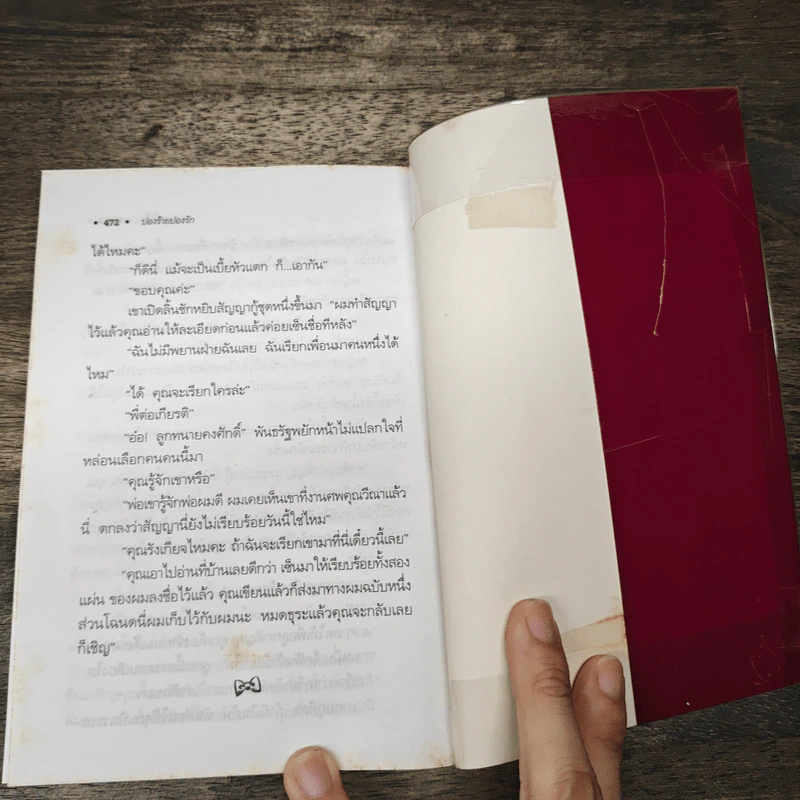 • 472 • ปองร้ายปองรัก
ได้ไหมคะ"
"ก็ดีนี่ แม้จะเป็นเบี้ยหัวแตก ก็...เอากัน"
"ขอบคุณค่ะ"
เขาเปิดลิ้นชักหยิบสัญญากู้ชุดหนึ่งขึ้นมา "ผมทำสัญญา
ไว้แล้วคุณอ่านให้ละเอียดก่อนแล้วค่อยเซ็นชื่อทีหลัง"
"ฉันไม่มีพยานฝ่ายฉันเลย ฉันเรียกเพื่อนมาคนหนึ่งได้
ไหม"
"ได้ คุณจะเรียกใครล่ะ"
"พี่ต่อเกียรติ"
"อ๋อ! ลูกทนายคงศักดิ์" พันธรัฐพยักหน้าไม่แปลกใจที่
หล่อนเลือกคนคนนี้มา
"คุณรู้จักเขาหรือ"
"พ่อเขารู้จักพ่อผมดี ผมเคยเห็นเขาที่งานศพคุณวีณาแล้ว
นี่ ตกลงว่าสัญญานี่ยังไม่เรียบร้อยวันนี้ใช่ไหม"
"คุณรังเกียจไหมคะ ถ้าฉันจะเรียกเขามาที่นี่เดี๋ยวนี้เลย"
"คุณเอาไปอ่านที่บ้านเลยดีกว่า เซ็นมาให้เรียบร้อยทั้งสอง
แผ่น ของผมลงชื่อไว้แล้ว คุณเขียนแล้วก็ส่งมาทางผมฉบับหนึ่ง
ส่วนโฉนดนี่ผมเก็บไว้กับผมนะ หมดธุระแล้วคุณจะกลับเลย
ก็เชิญ"